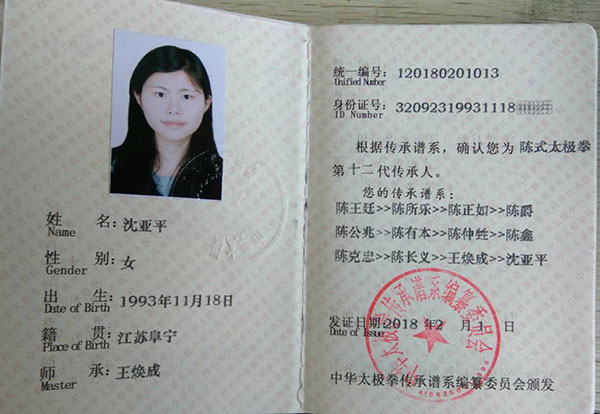 姓 名:沈亚平
Name
性 别:女
Gender
出 生:1993年11月18日
Date of Birth
籍 贯:江苏阜宁
Place of Birth
师 承:王焕成
Master
统一编号:120180201013
Unified Number
身份证号:32092319931118
ID Number
根据传承谱系,确认您为 陈式太极拳
第十二代传承人。
您的传承谱系:
陈王廷>>陈所乐>>陈正如>>陈爵
陈公兆>>陈有本>>陈仲甡>>陈鑫
陈克忠>>陈长义>>王焕成>>沈亚平
发证日期:2018 年2 月 1 日
Date of Issue
中华太极拳传承谱系编纂委员会颁发